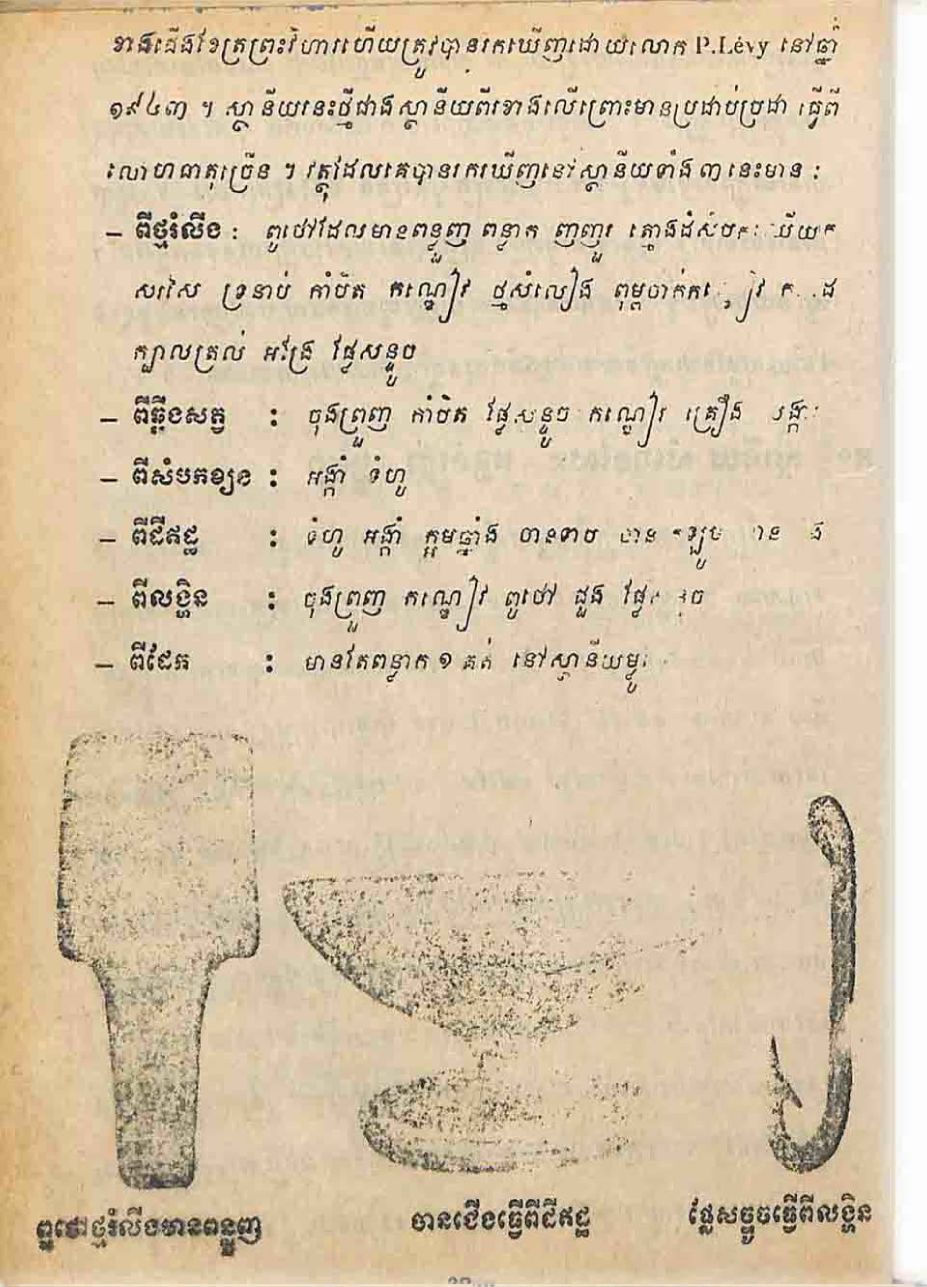 ខាងជើងខែត្រព្រះវិហារហើយត្រូវបានរកឃើញដោយលោក P.Lévy នៅឆ្នាំ
១៩៤៣ ។ ស្ថានីយនេះថ្មីជាងស្ថានីយពីរខាងលើព្រោះមានប្រដាប់ប្រដា ធ្វើពី
លោហធាតុច្រើន ។ វត្ថុដែលគេបានរកឃើញនៅស្ថានីយទាំង ៣ នេះមាន :
– ពីថ្មរំលីង : ពូថៅដែលមានពន្លួញ ពន្លាក ញញួរ
សរសៃ ទ្រនាប់ កាំបិត កណ្ដៀវ ថ្មសំលៀង ពុម្ព
ក្បាលត្រល់ អង្រែ ផ្លែសន្ទូច
– ពីឆ្អឹងសត្វ : ចុងព្រួញ កាំបិត ផ្លែសន្ទូច កណ្ដៀវ គ្រឿង
– ពីសំបកខ្យង : អង្កាំ ទំហូ
– ពីដីឥដ្ឋ : ទំហូ អង្កាំ ក្អមឆ្នាំង ចានទាប
– ពីលង្ហិន : ចុងព្រួញ កណ្ដៀវ ពូថៅ ដួង
– ពីដែក : មានតែពន្លាក ១ គត់ នៅស្ថានីយម្លូ
ពូថៅថ្មរំលីងមានពន្លួញ
ចានជើងធ្វើពីដីឥដ្ឋ
ផ្លែសន្ទូចធ្វើពីលង្ហិន